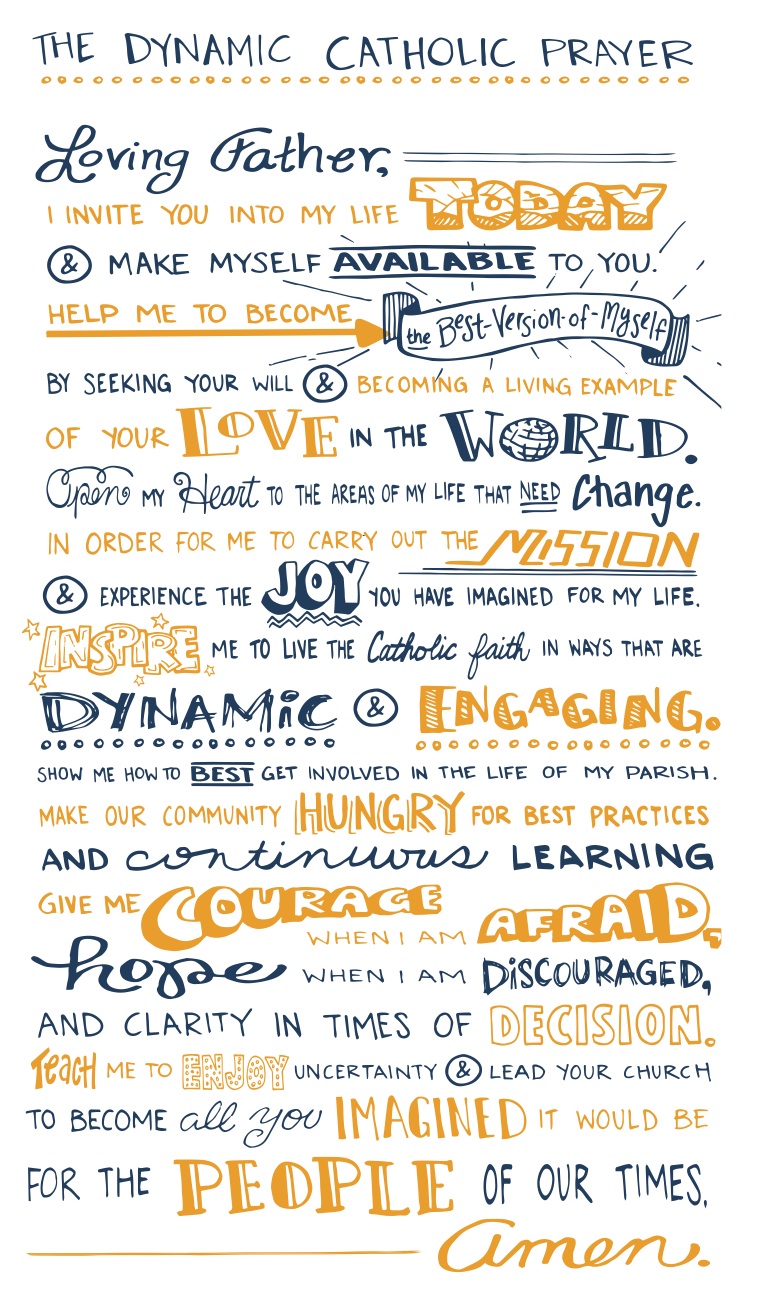 THE DYNAMIC CATHOLIC PRAYER
Loving Father,
I INVITE YOU INTO MY LIFE TODAY
& MAKE MYSELF AVAILABLE TO YOU.
HELP ME TO BECOME the Best-Version-of-Myself
BY SEEKING YOUR WILL & BECOMING A LIVING EXAMPLE
OF YOUR LOVE IN THE WORLD.
Open MY Heart TO THE AREAS OF MY LIFE THAT NEED Change.
IN ORDER FOR ME TO CARRY OUT THE MISSION
& EXPERIENCE THE JOY YOU HAVE IMAGINED FOR MY LIFE.
INSPIRE ME TO LIVE THE Catholic faith IN WAYS THAT ARE
DYNAMiC & ENGAGING.
SHOW ME HOW TO BEST GET INVOLVED IN THE LIFE OF MY PARISH.
MAKE OUR COMMUNITY HUNGRY FOR BEST PRACTICES
AND continuous LEARNING
GIVE ME COURAGE WHEN I AM AFRAID,
hope WHEN I AM DiSCOURAGED,
AND CLARITY IN TIMES OF DECISION.
Teach ME TO ENJOY UNCERTAINTY & LEAD YOUR CHURCH
TO BECOME all you IMAGINED IT WOULD BE
FOR THE PEOPLE OF OUR TIMES,
amen.